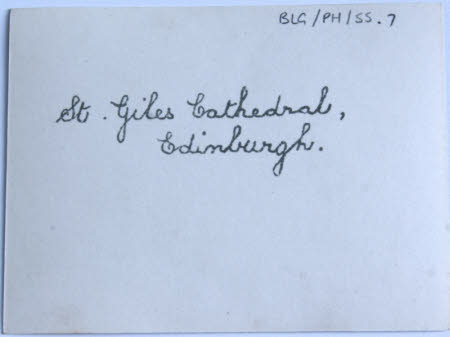 BLG/PH/SS.7
St. Giles Cathedral,
Edinburgh.